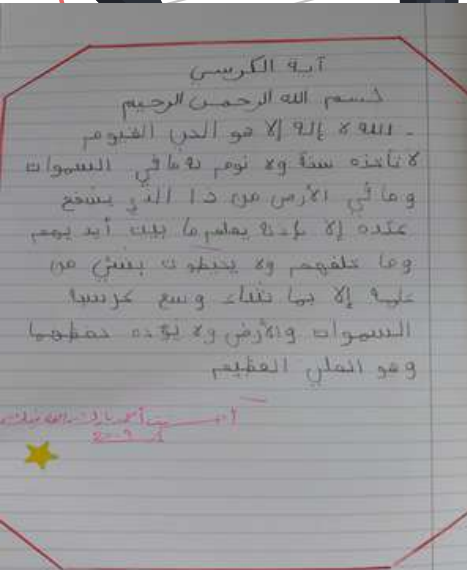 آية الكرسي
بسم الله الرحمن الرحيم
الله لا إله إلا هو الحي القيوم
لا تأخذه سنة ولا نوم له ما في السموات
وما في الأرض من ذا الذي يشفع
عنده إلا بإذنه يعلم ما بين أيديهم
وما خلفهم ولا يحيطون بشيء من
علمه إلا بما شاء وسع كرسيه
السموات والأرض ولا يؤده حفظهما
وهو العلي العظيم
أحسنت أحمد بارك الله فيك